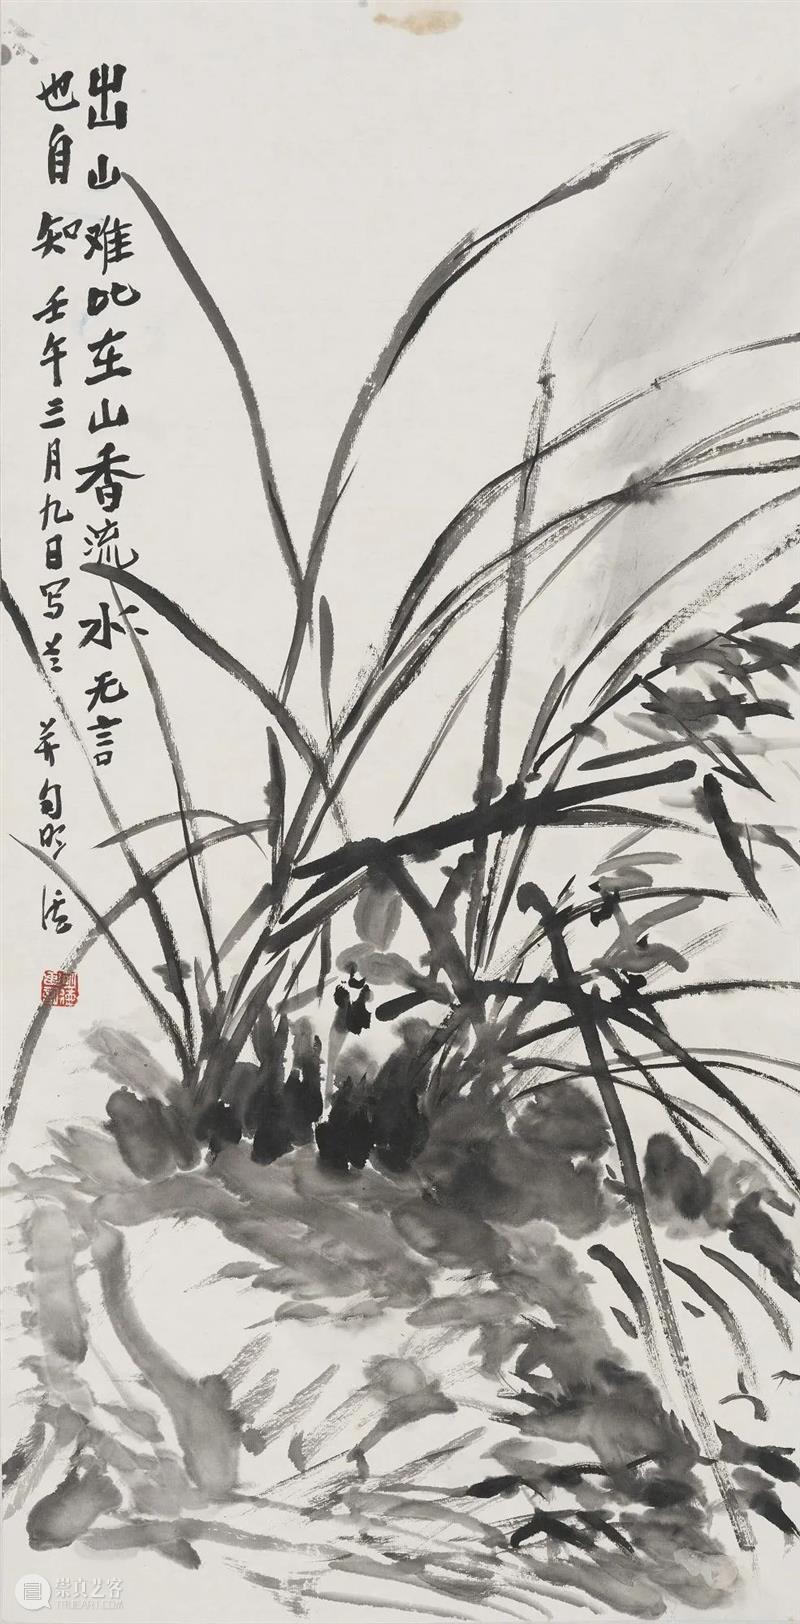 出山难比在山香流水无言
也自知 壬午三月九日写兰 并句
崇真艺客